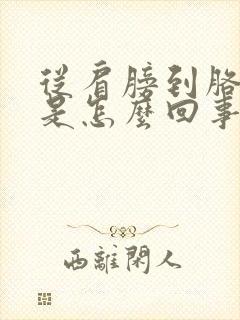 從肩膀到胳
是怎麼回事
西離閑人